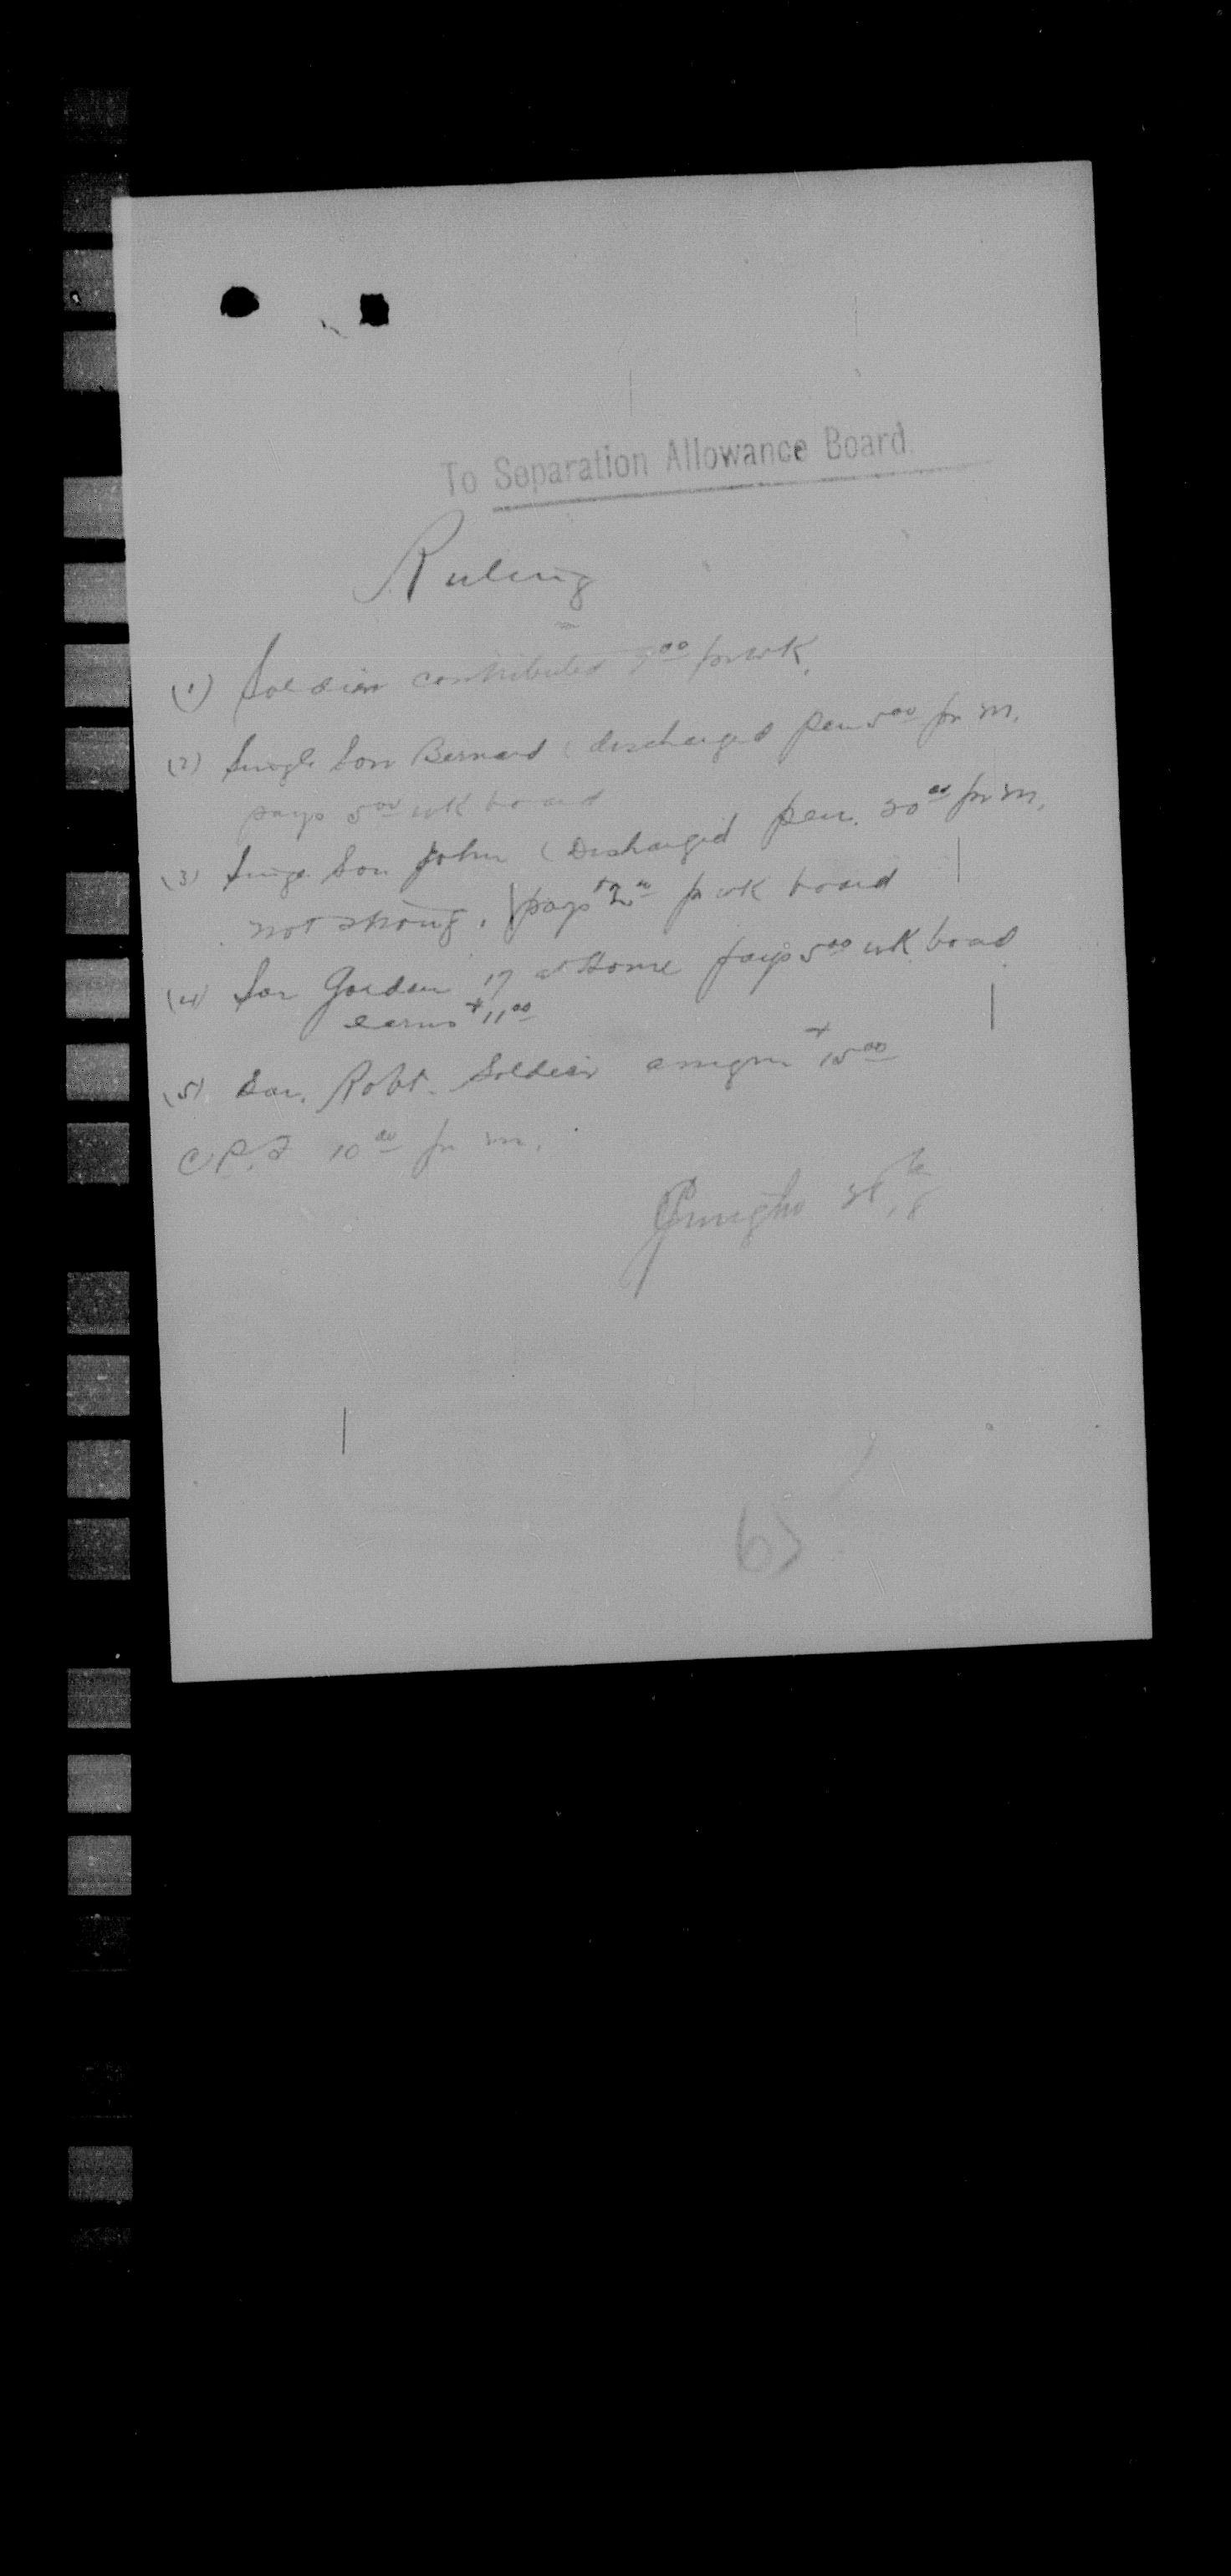 To Separation Allowance Board.
Ruling
(1) Soldier contributed 7 00 pr wk.
(2) Single Son Bernard (discharged pen 5 00 pr m.
pays 5 00 wk board
(3) Single Son John (Discharged pen. 20 00 pr m.
not strong. pays $2 00 pr wk board
(4) Son Gordon 17 at Home pays 5 00 wk board
earns $11 00
(5) Son. Robt. Soldier assigns $15 00
C.P.F 10 00 pr m.
65